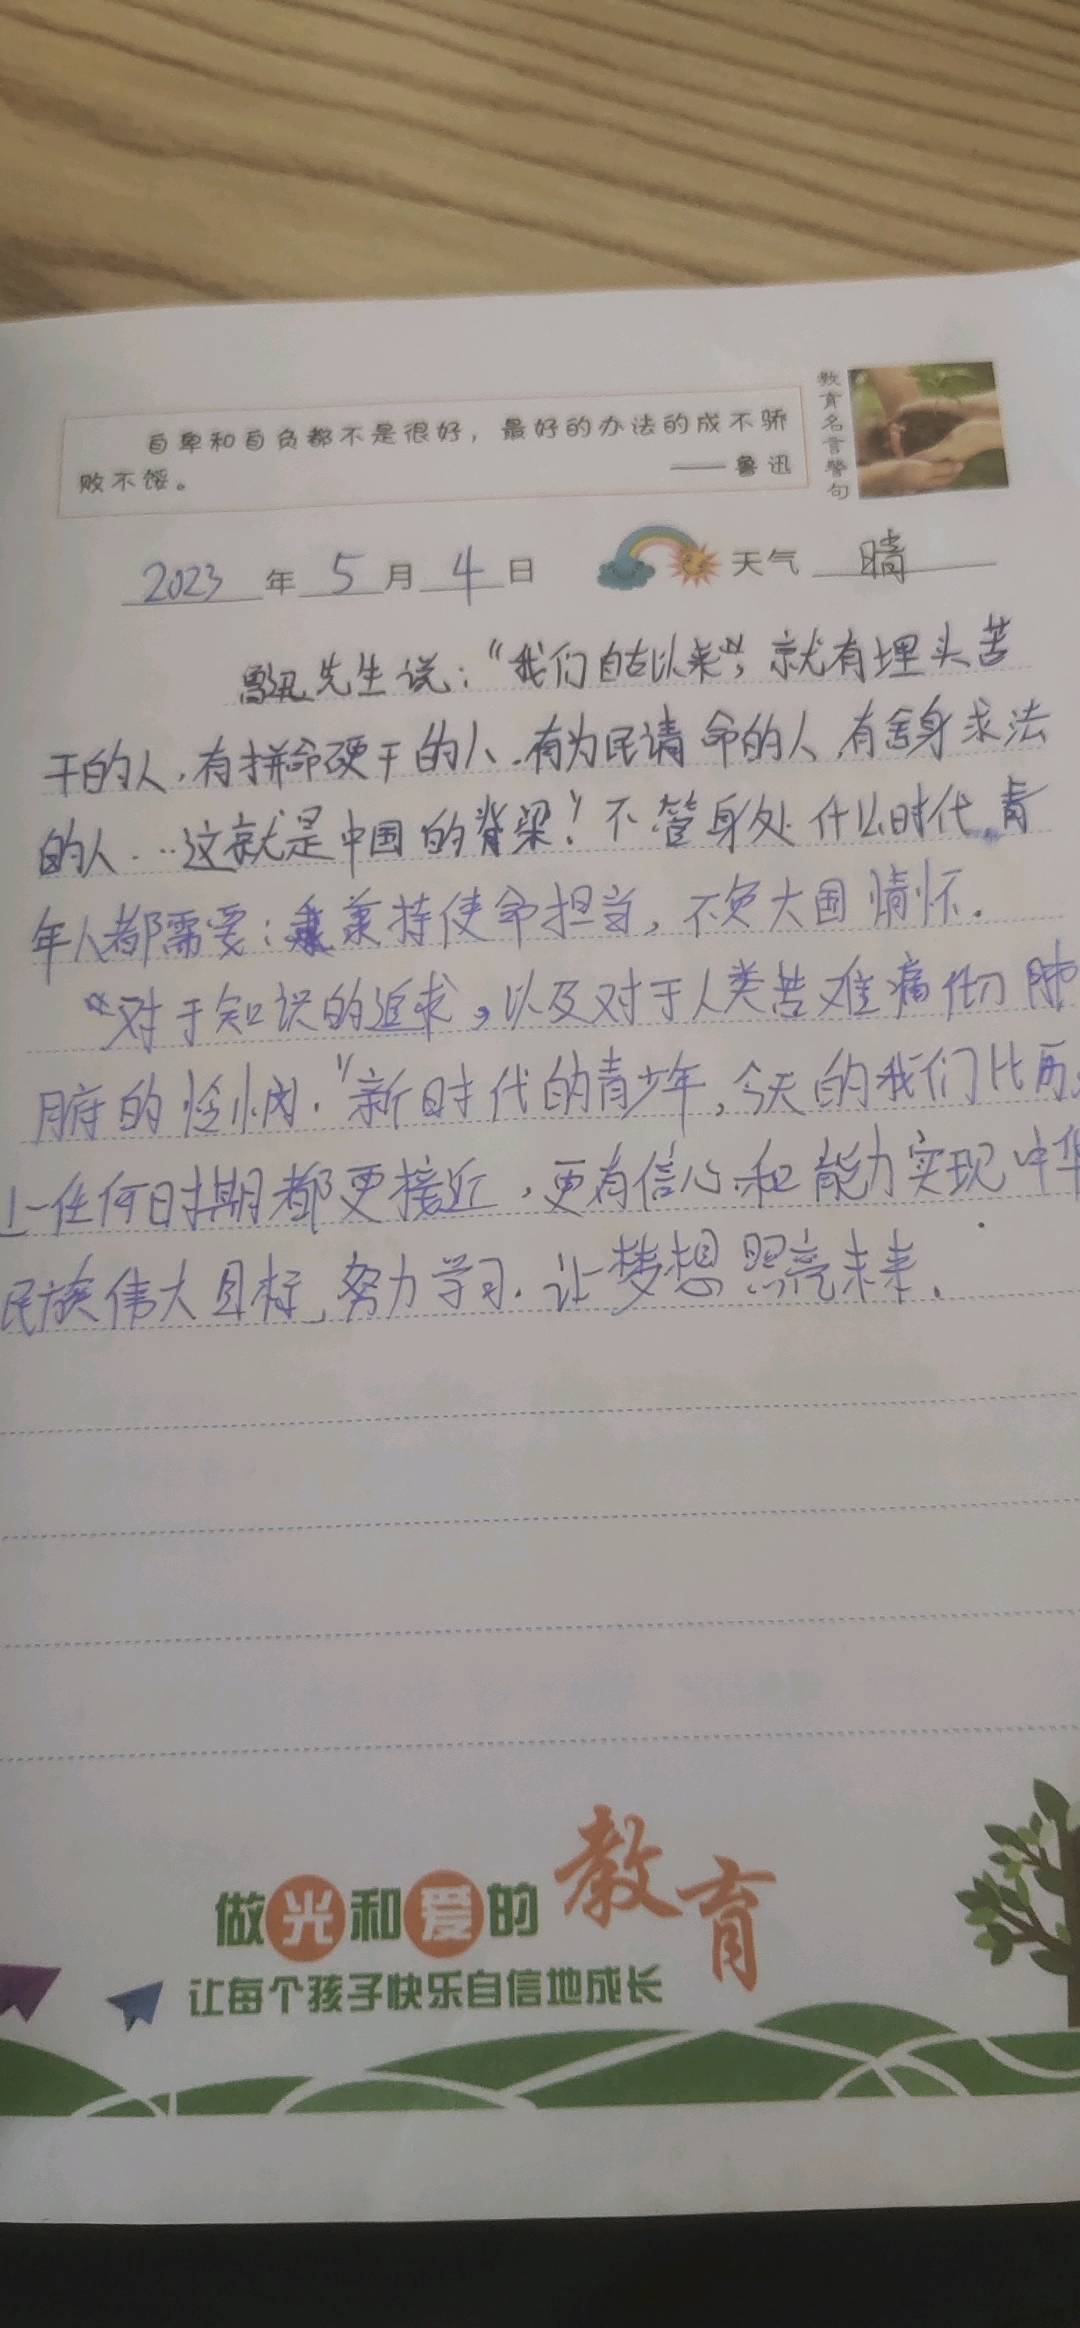 自卑和自负都不是很好，最好的办法的成不骄
败不馁。
——鲁迅
教育名言警句
2023年5月4日 天气 晴
鲁迅先生说：“我们自古以来”，就有埋头苦
干的人，有拼命硬干的人，有为民请命的人，有舍身求法
的人...这就是中国的脊梁！”不管身处什么时代，青
年人都需要：秉持使命担当，不负大国情怀.
“对于知识的追求，以及对于人类苦难痛彻肺
腑的怜悯.”新时代的青少年，今天的我们比历
上任何时期都更接近，更有信心和能力实现中华
民族伟大目标，努力学习.让梦想照亮未来.
做光和爱的教育
让每个孩子快乐自信地成长